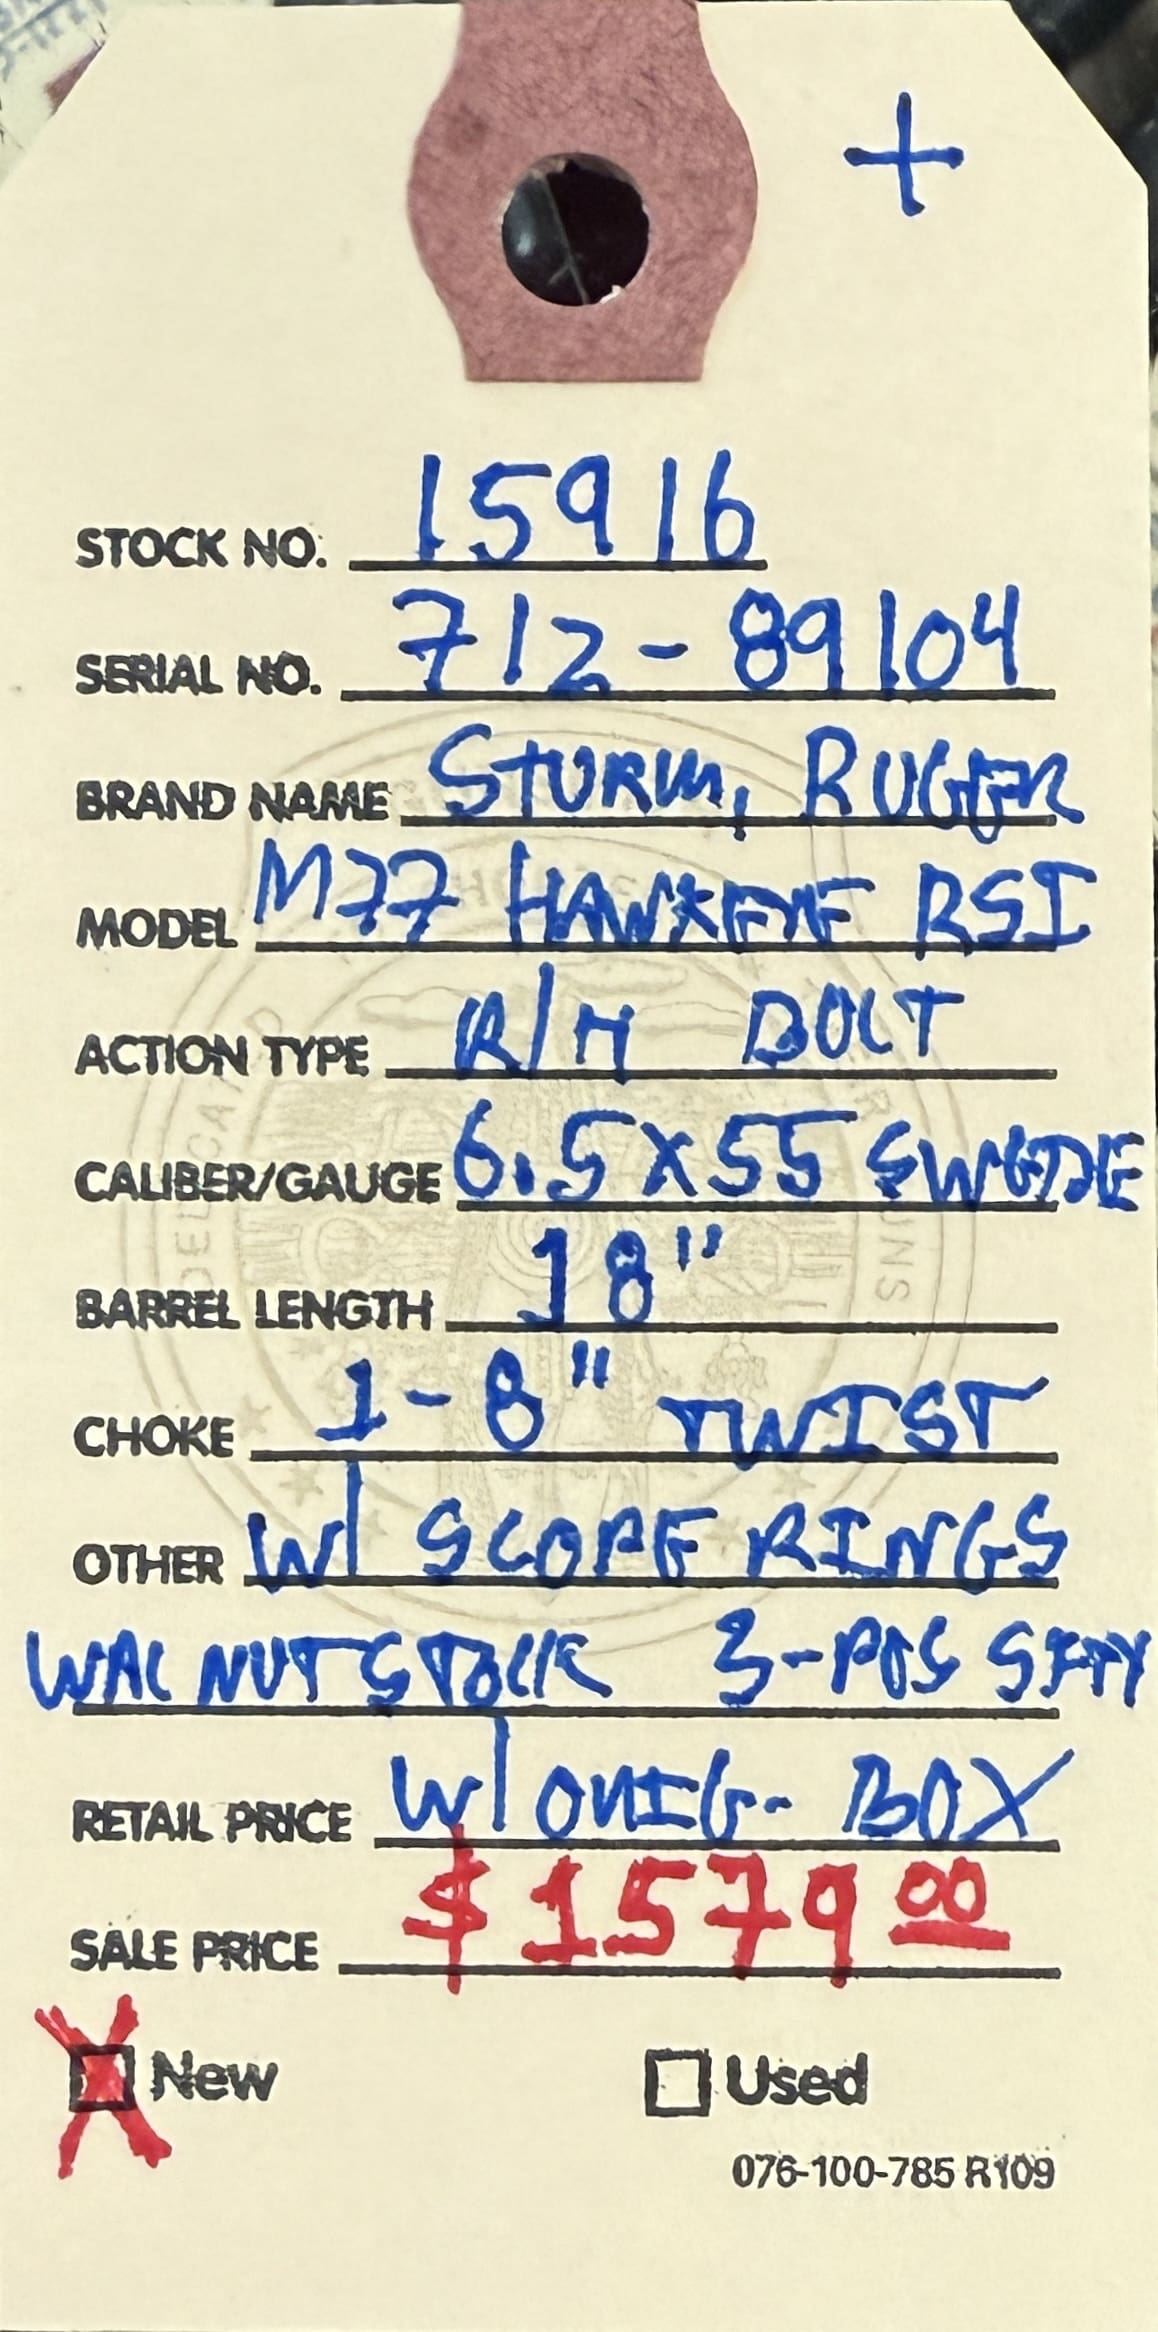 +
STOCK NO. 15916
SERIAL NO. 712-89104
BRAND NAME STURM, RUGER
MODEL M77 HAWKEYE RSI
ACTION TYPE R/H BOLT
CALIBER/GAUGE 6.5X55 SWEDE
BARREL LENGTH 18"
CHOKE 1-8" TWIST
OTHER W/ SCOPE RINGS
WALNUT STOCK 3-POS SFTY
RETAIL PRICE W/ ORIG. BOX
SALE PRICE $1579 00
X New Used
076-100-785 R109